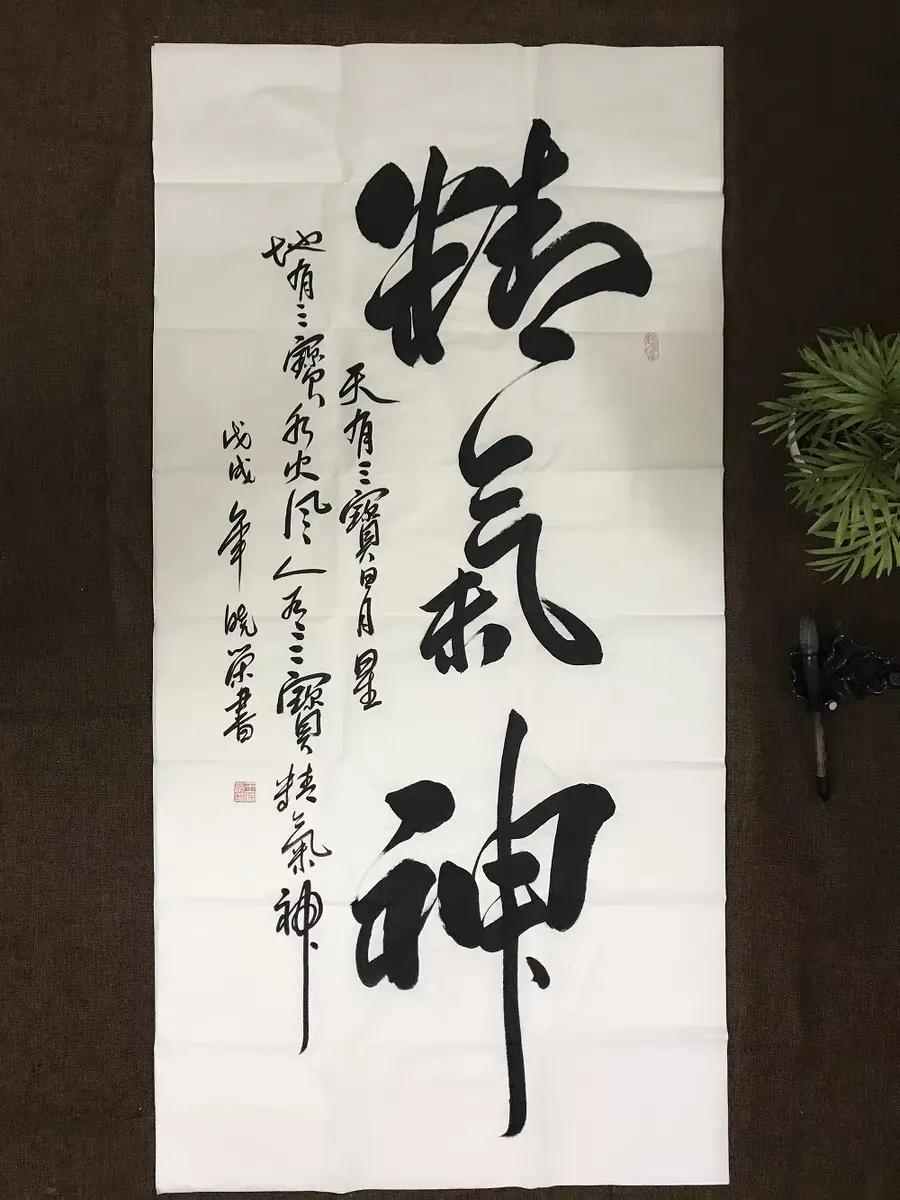 精氣神
天有三寶日月星
地有三寶水火風人有三寶精氣神
戊戌年曉榮書